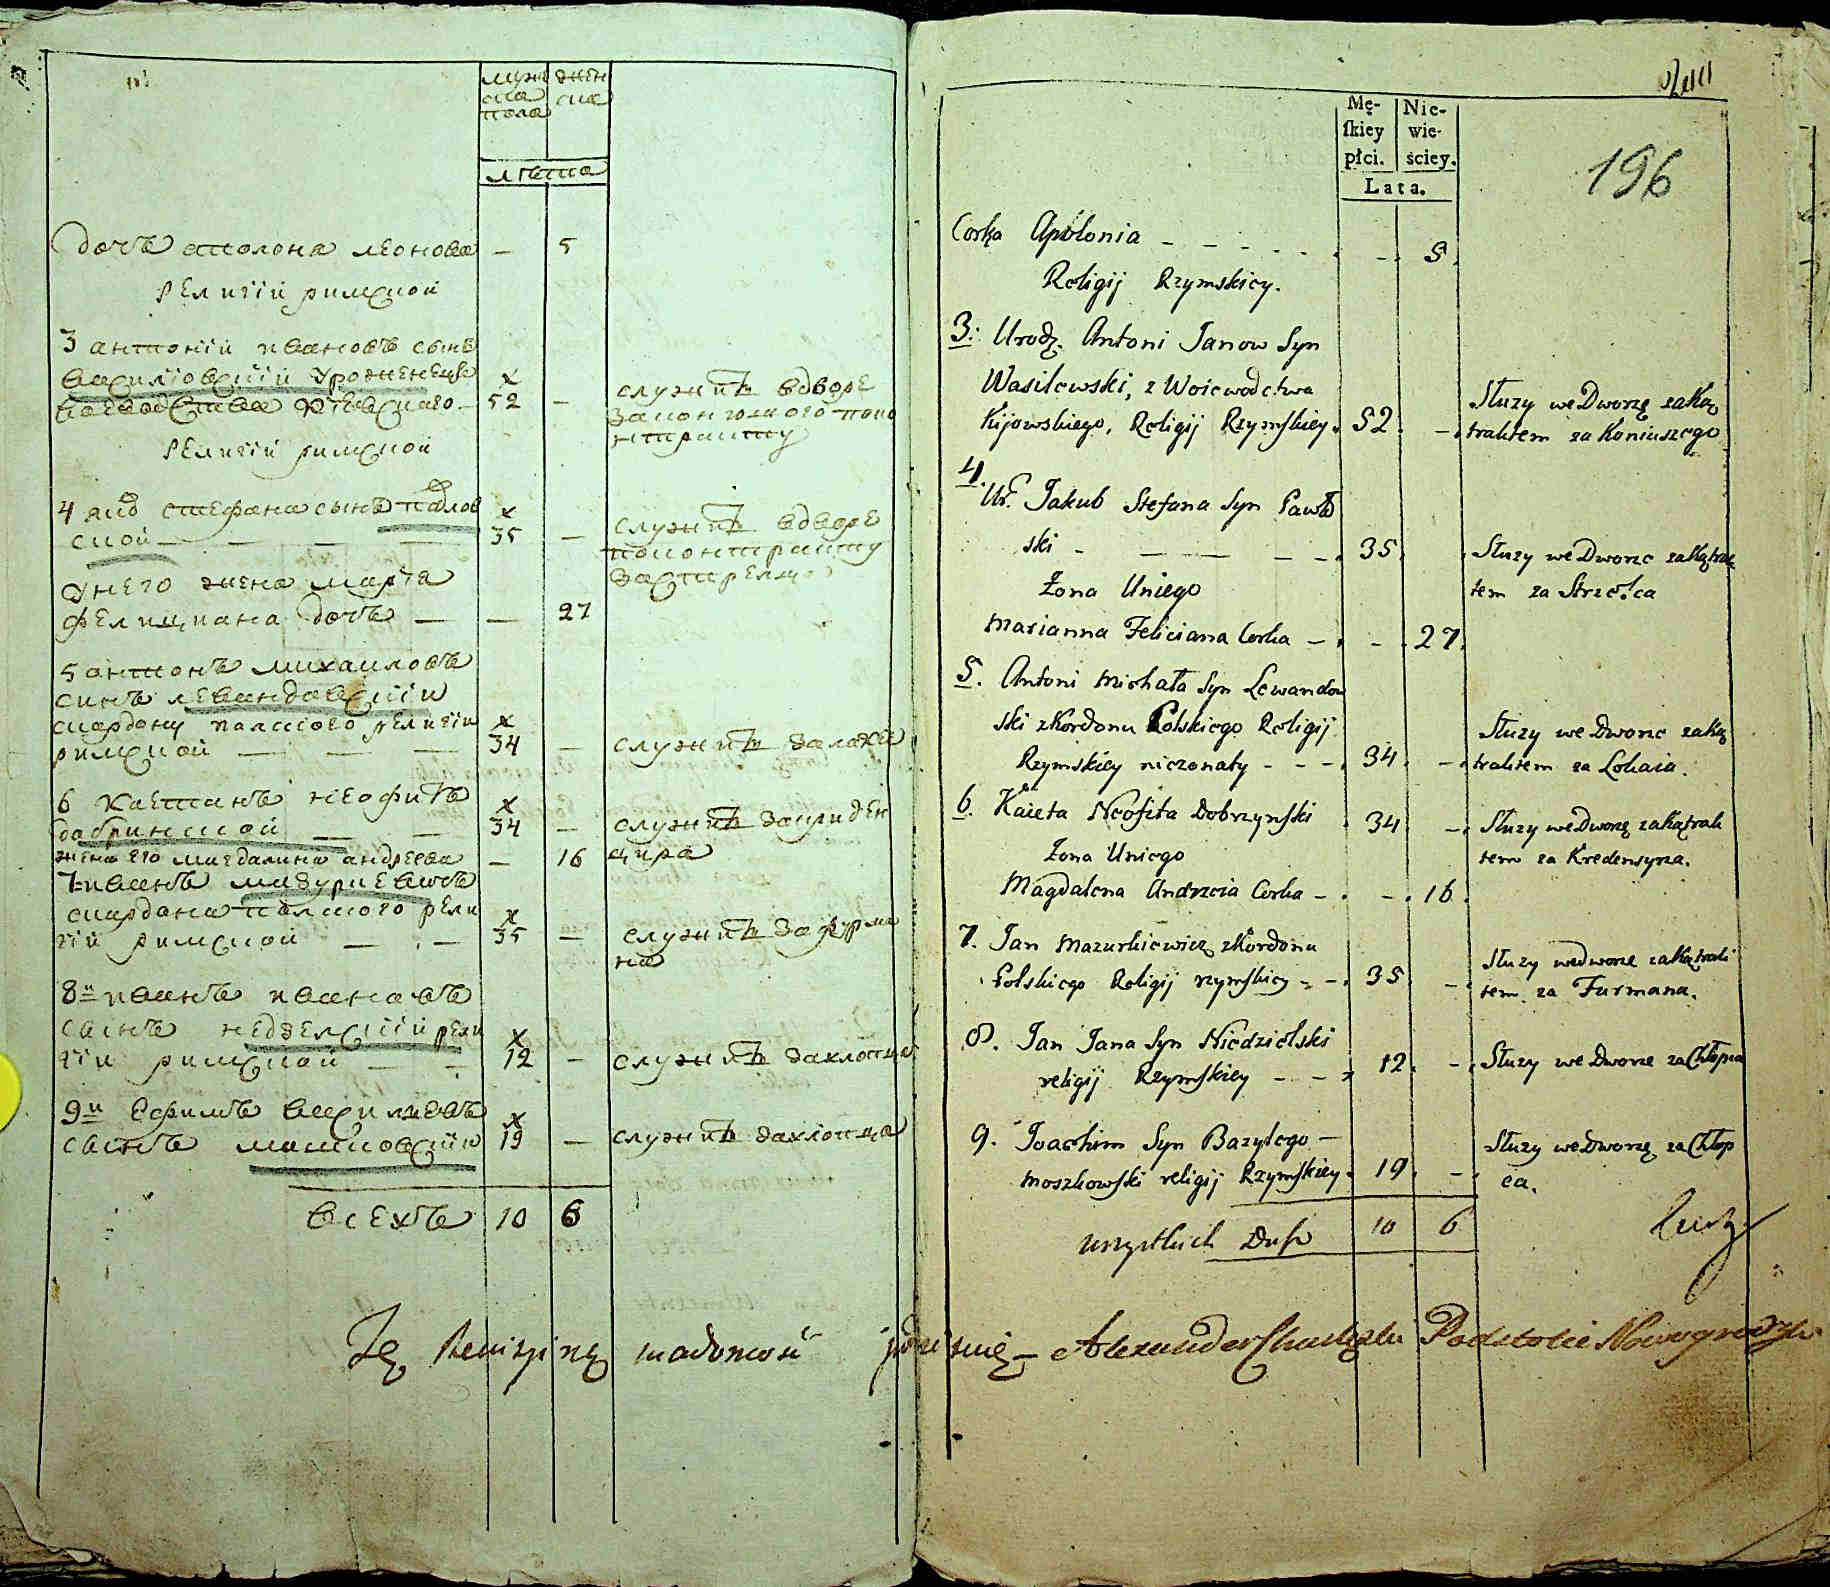 муж жен
ска ска
пола
лѣта
дочъ аполона леонова — 5
религіи римской
3 антоній ивановъ сынъ
василіовскій уроженецъ х
воеводства кіевскаго — 52 —
религіи римской
служитъ вдворе
законюшого поко
нтракту
4 яков стефана сынъ павлов х
ской — — — 35 —
служитъ вдворе
поконтракту
застрелца
унего жена марта
фелициана дочъ — — 27
5 антонъ михаиловъ
синъ левандовскіи
скардону полского религіи х
римской — — — 34 — служитъ залокая
6 каетанъ неофитъ х
добринской — — 34 — служитъ закриден
цира
жена его магдалина андреева — 16
7 иванъ мазуркевичъ
скардона полского рели х
гіи римской — — 35 — служитъ зафурма
на
8и иванъ ивановъ
сынъ недзелскіи рели х
гіи римской — — 12 — служитъ захлопца
9и ефимъ василиевъ х
сынъ машковскіи 19 — служитъ захлопца
всехъ 10 6
196
Mę- Nie-
ſkiey wie-
płci. ściey.
Lata.
Corka Apolonia - - - - - - 5.
Religij Rzymskiey.
3: Urodz. Antoni Janow Syn
Wasilewski, z Woiewodctwa
Kijowskiego, Religij Rzymſkiey. 52. -
Słuzy we Dworzę zaKą
traktem za Koniuszego
4.
Ur. Jakub Stefana Syn Pawło
ski - — — — - - 35.
Słuzy we Dworze zaKątrak
tem za Strzelca
Żona Uniego
Marianna Feliciana Corka - - 27.
5. Antoni Michała Syn Lewandow
ski zKordonu Polskiego Religij
Rzymskiey niezonaty - - - 34. -
Słuzy we Dworze zaKą
traktem za Lokaia.
6. Kaieta Neofita Dobrzynſki 34 -
Słuzy weDworzę zaKątrak
tem za Kredensyrza.
Żona Uniego
Magdalena Andrzeia Corka - - 16.
7. Jan Mazurkiewicz zKordonu
Polskiego Religij rzymſkiey - - 35 -
Słuzy wedworze zaKątrak
tem za Furmana.
8. Jan Jana Syn Niedzielski
religij Rzymſkiey - - 12. - Słuzy we Dworze zaChłopca
9. Joachim Syn Bazylego —
Moszkowſki religij Rzymſkiey. 19. -
Słuzy weDworzę zaChłop
ca.
wszystkich Dusz 10 6
Tę Rewizyi nę wiadomość podpisuię — Alexander Podstolic Nowogrodzki